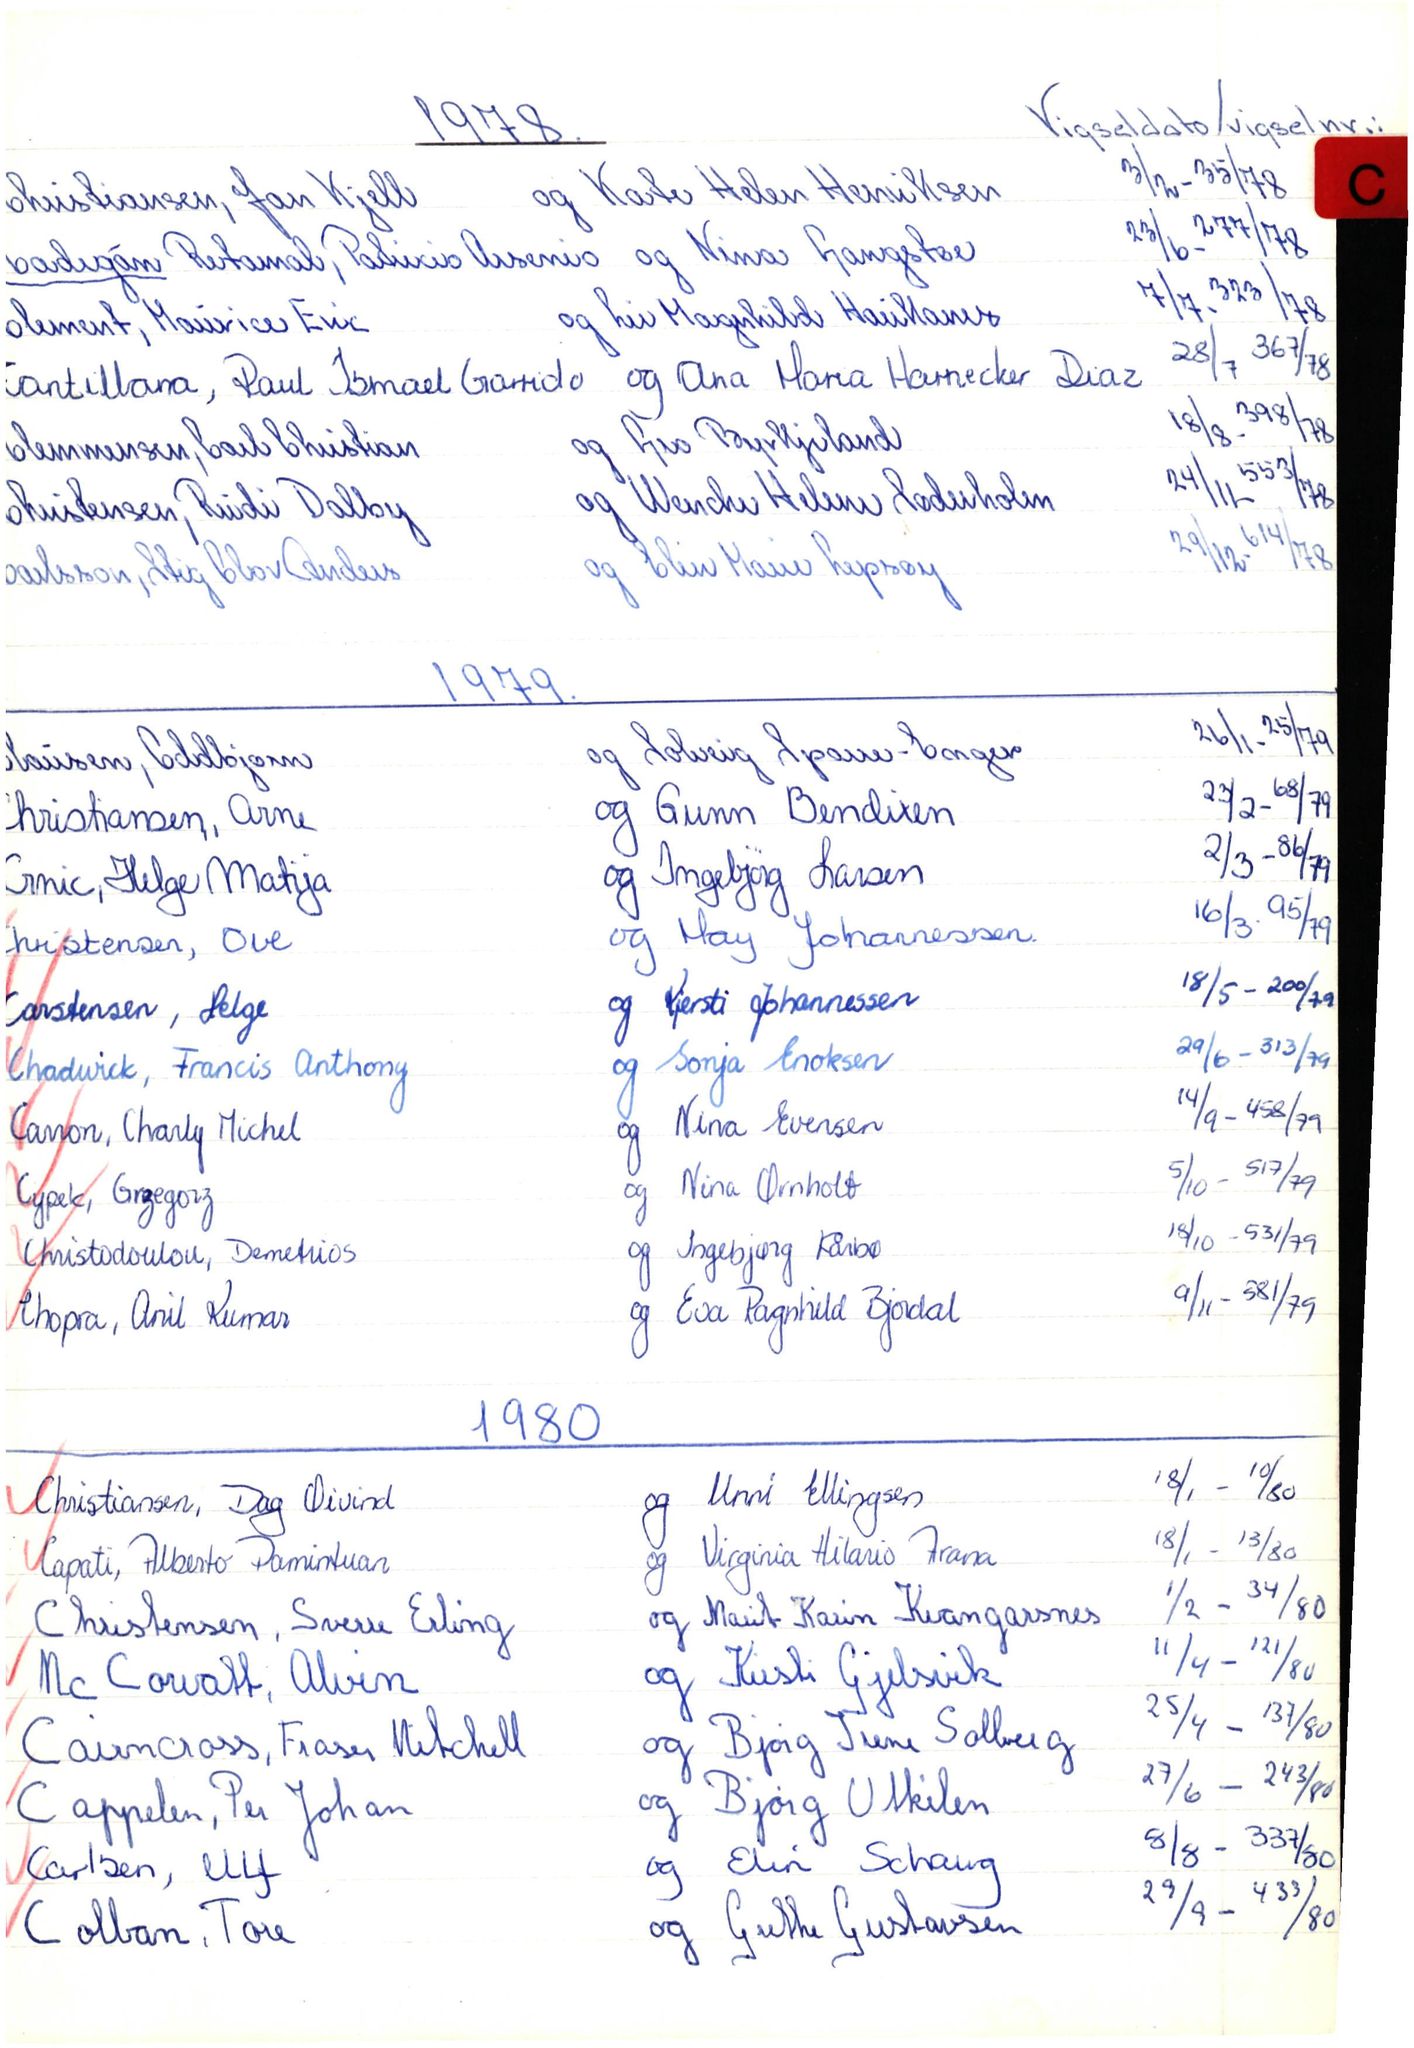 1978.
Vigseldato/vigselnr.:
C
Christiansen, Jan Kjell og Kate Helen Henriksen 3/2-35/78
Retamal, Patricio Arsenio og Nina Langstøe 23/6-277/78
Clement, Maurice Eric og Liv Magnhild Haukanes 7/7-323/78
Cantillana, Raul Ismael Garrido og Ana Maria Harnecker Diaz 28/7 367/78
Clemmensen, Carl Christian og Gro Byrkjeland 18/8-398/78
Christensen, Rudi Dalby og Wenche Helene Soderholm 24/11-553/78
Carlsson, Stig Olov Anders og Elin Marie Lepsøy 29/12-614/78
1979.
Clausen, Oddbjørn og Solveig 26/1-25/79
Christiansen, Arne og Gunn Bendixen 23/2-68/79
Crnic, Helge Matija og Ingebjörg Larsen 2/3-86/79
Christensen, Ove og May Johannessen. 16/3-95/79
Carstensen, Helge og Kjersti Johannessen 18/5-200/79
Chadwick, Francis Anthony og Sonja Enoksen 29/6-313/79
Carron, Charly Michel og Nina Evensen 14/9-458/79
Cypek, Grzegorz og Nina Ørnholt 5/10-517/79
Christodoulou, Demetrios og Ingebjørg Kårbø 18/10-531/79
Chopra, Anil Kumar og Eva Ragnhild Bjordal 9/11-581/79
1980
Christiansen, Dag Øivind og Unni Ellingsen 18/1-10/80
Capati, Alberto Pamintuan og Virginia Hilario Frana 18/1-13/80
Christensen, Sverre Erling og Marit Karin Kvangarsnes 1/2-34/80
Mc Corvatt, Alvin og Kirsti Gjelsvik 11/4-121/80
Cairncross, Fraser Mitchell og Bjørg Irene Solberg 25/4-137/80
Cappelen, Per Johan og Bjørg Utkilen 27/6-243/80
Carlsen, Ulf og Elin Schaug 8/8-337/80
Colban, Tore og Grethe Gustavsen 29/9-433/80